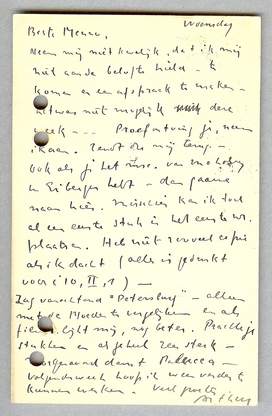 woensdag
Beste Menno,
Neem mij niet kwalijk, dat ik mij
niet aan de belofte hield - te
komen en een afspraak te maken -
't was niet mogelijk deze
week --- Proefontvang je, neem
ik aan. Zendt de mij terug -
ook als je het mss. van
en hebt - dan gaarne
naar hier. Misschien kan ik toch
al een eerste stuk in het eerste no.
plaatsen. Heb niet zooveel copie
als ik dacht (alles is gedrukt
voor i 10, II, 1) —
Zag vanavond "Petersburg" - alleen
met de Moeder te vergelijken en als
film, lijkt mij, nog beter. Prachtige
stukken en als geheel zeer sterk -
volgende week hoop ik weer verder te
kunnen werken. Veel groeten
Arthur